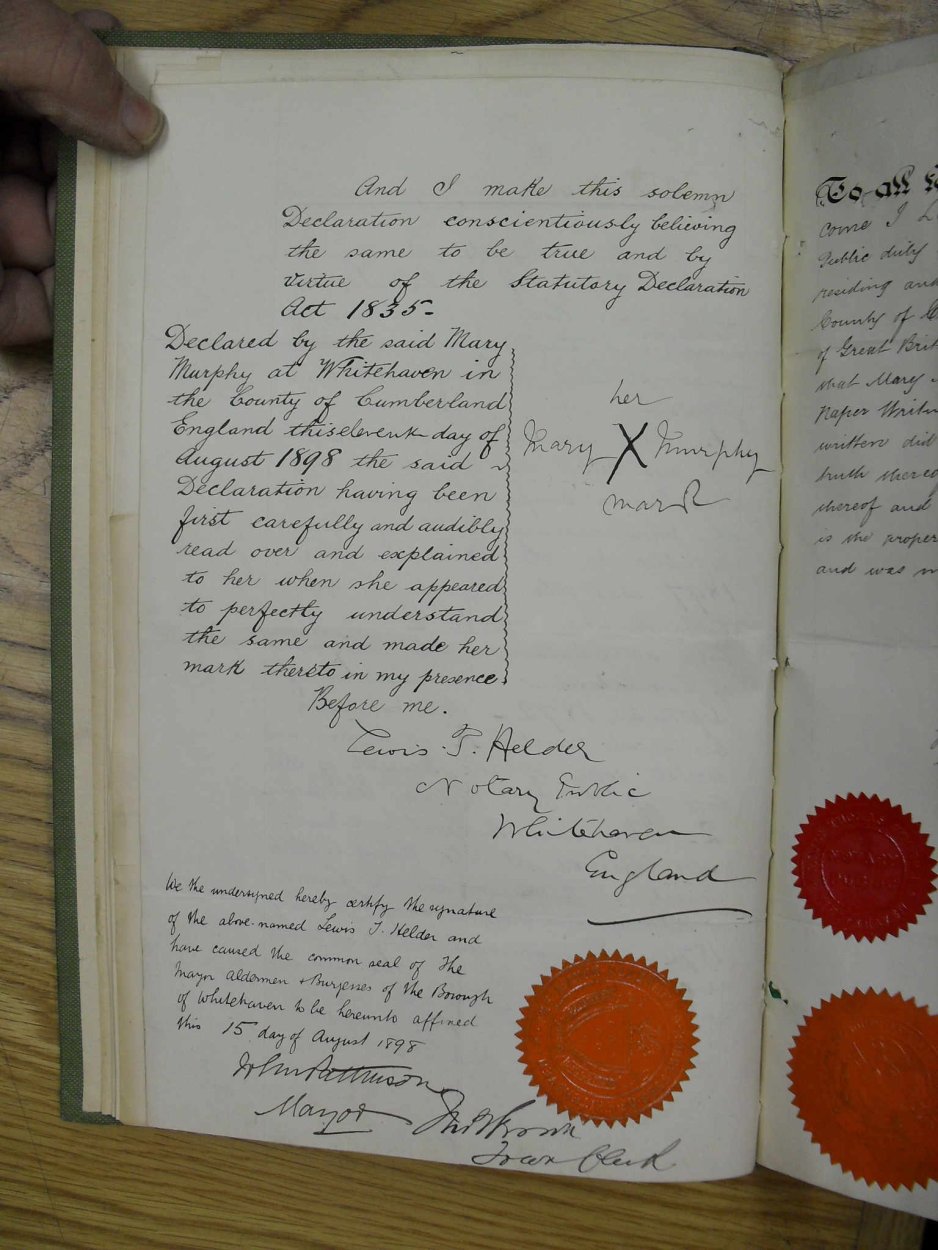 And I make this solemn
Declaration conscientiously believing
the same to be true and by
virtue of the Statutory Declaration
Act 1835-
Declared by the said Mary
Murphy at Whitehaven in
the County of Cumberland
England this eleventh day of
August 1898 the said
Declaration having been
first carefully and audibly
read over and explained
to her when she appeared
to perfectly understand
the same and made her
mark thereto in my presence.
Before me.
her
Mary X Murphy
mark
Lewis T. Helder
Notary Public
Whitehaven
England
We the undersigned hereby certify the signature
of the above-named Lewis T. Helder and
have caused the common seal of the
Mayor Aldermen + Burgesses of the Borough
of Whitehaven to be hereunto affixed
this 15 day of August 1898
Pattinson
Mayor
Town Clerk
To all
come I
Public duly
residing and
County of
of Great Brit
that Mary
Paper Writin
written did
truth thereo
thereof and
is the proper
and was m